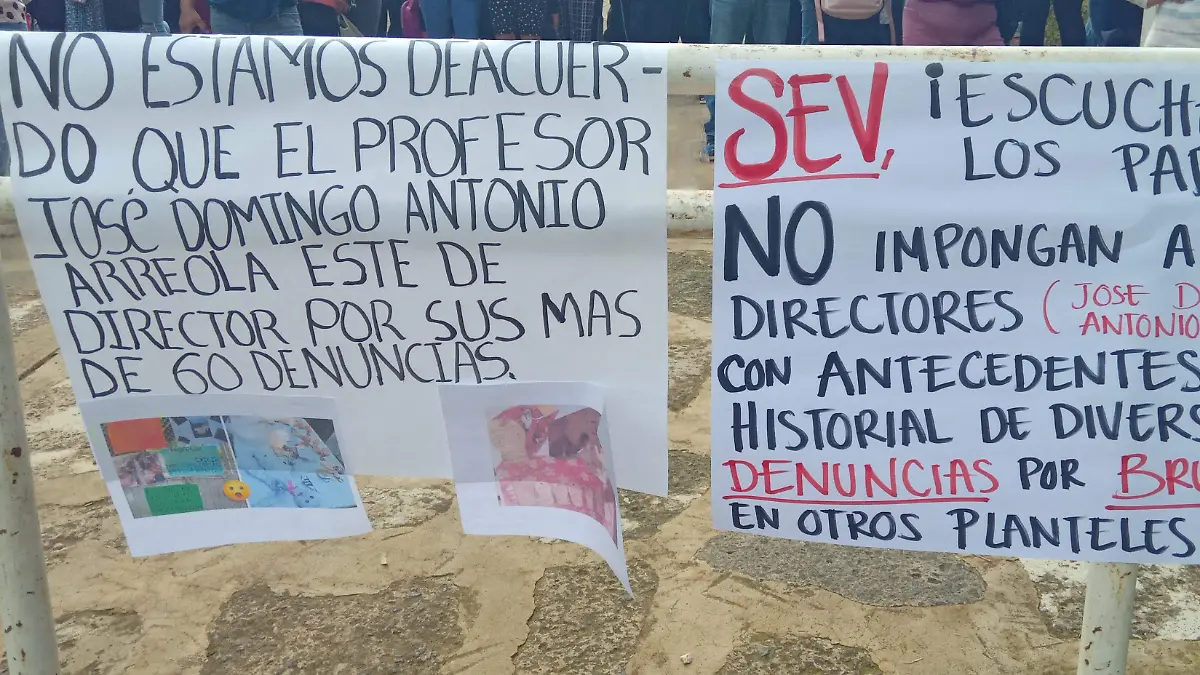 NO ESTAMOS DEACUER-
DO QUE EL PROFESOR
JOSÉ DOMINGO ANTONIO
ARREOLA ESTE DE
DIRECTOR POR SUS MAS
DE 60 DENUNCIAS.
SEV, ¡ESCUCH
LOS PA
NO IMPONGAN A
DIRECTORES (JOSE D
ANTONIO
CON ANTECEDENTES
HISTORIAL DE DIVERS
DENUNCIAS POR BRU
EN OTROS PLANTELES